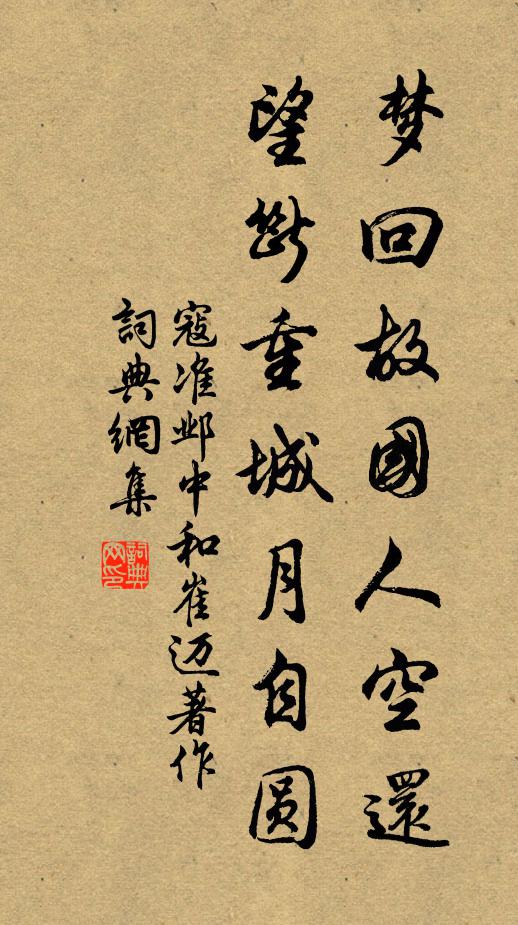 梦回故國人空還
望断重城月自圆
寇准邺中和崔迈著作
詞典網集
詞典
网印